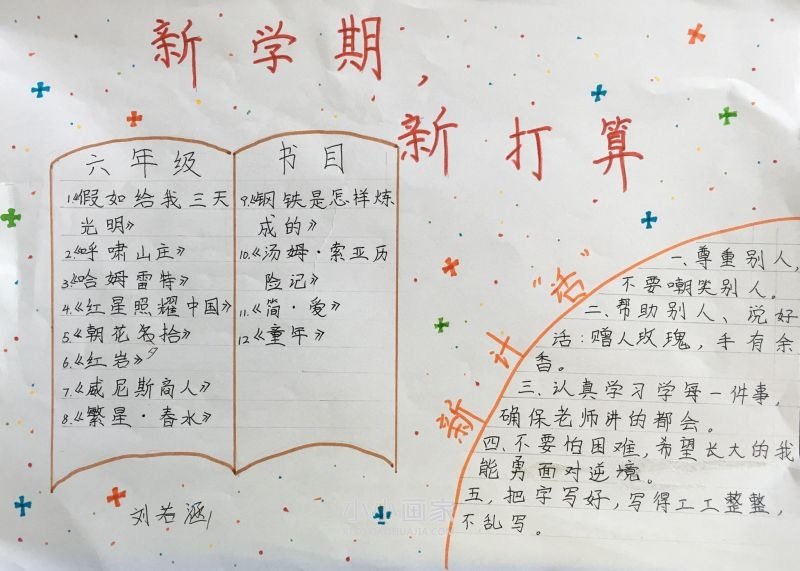 新学期，
新打算
六年级
1.《假如给我三天
光明》
2.《呼啸山庄》
3.《哈姆雷特》
4.《红星照耀中国》
5.《朝花夕拾》
6.《红岩》
7.《威尼斯商人》
8.《繁星·春水》
书目
9.《钢铁是怎样炼
成的》
10.《汤姆·索亚历
险记》
11.《简·爱》
12.《童年》
刘若涵
新计“话”
一、尊重别人，
不要嘲类别人。
二、帮助别人、说好
话：赠人玫瑰，手有余
香。
三、认真学习学每一件事，
确保老师讲的都会。
四、不要怕困难，希望长大的我
能勇面对逆境。
五，把字写好，写得工工整整，
不乱写。
小小画家